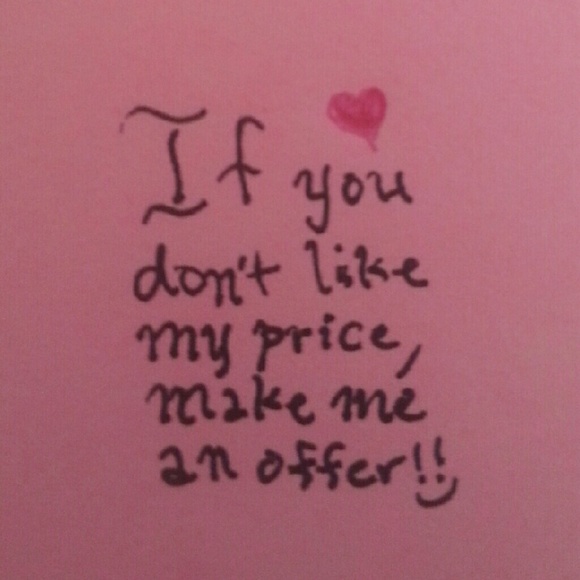 If you
don't like
my price,
make me
an offer!!